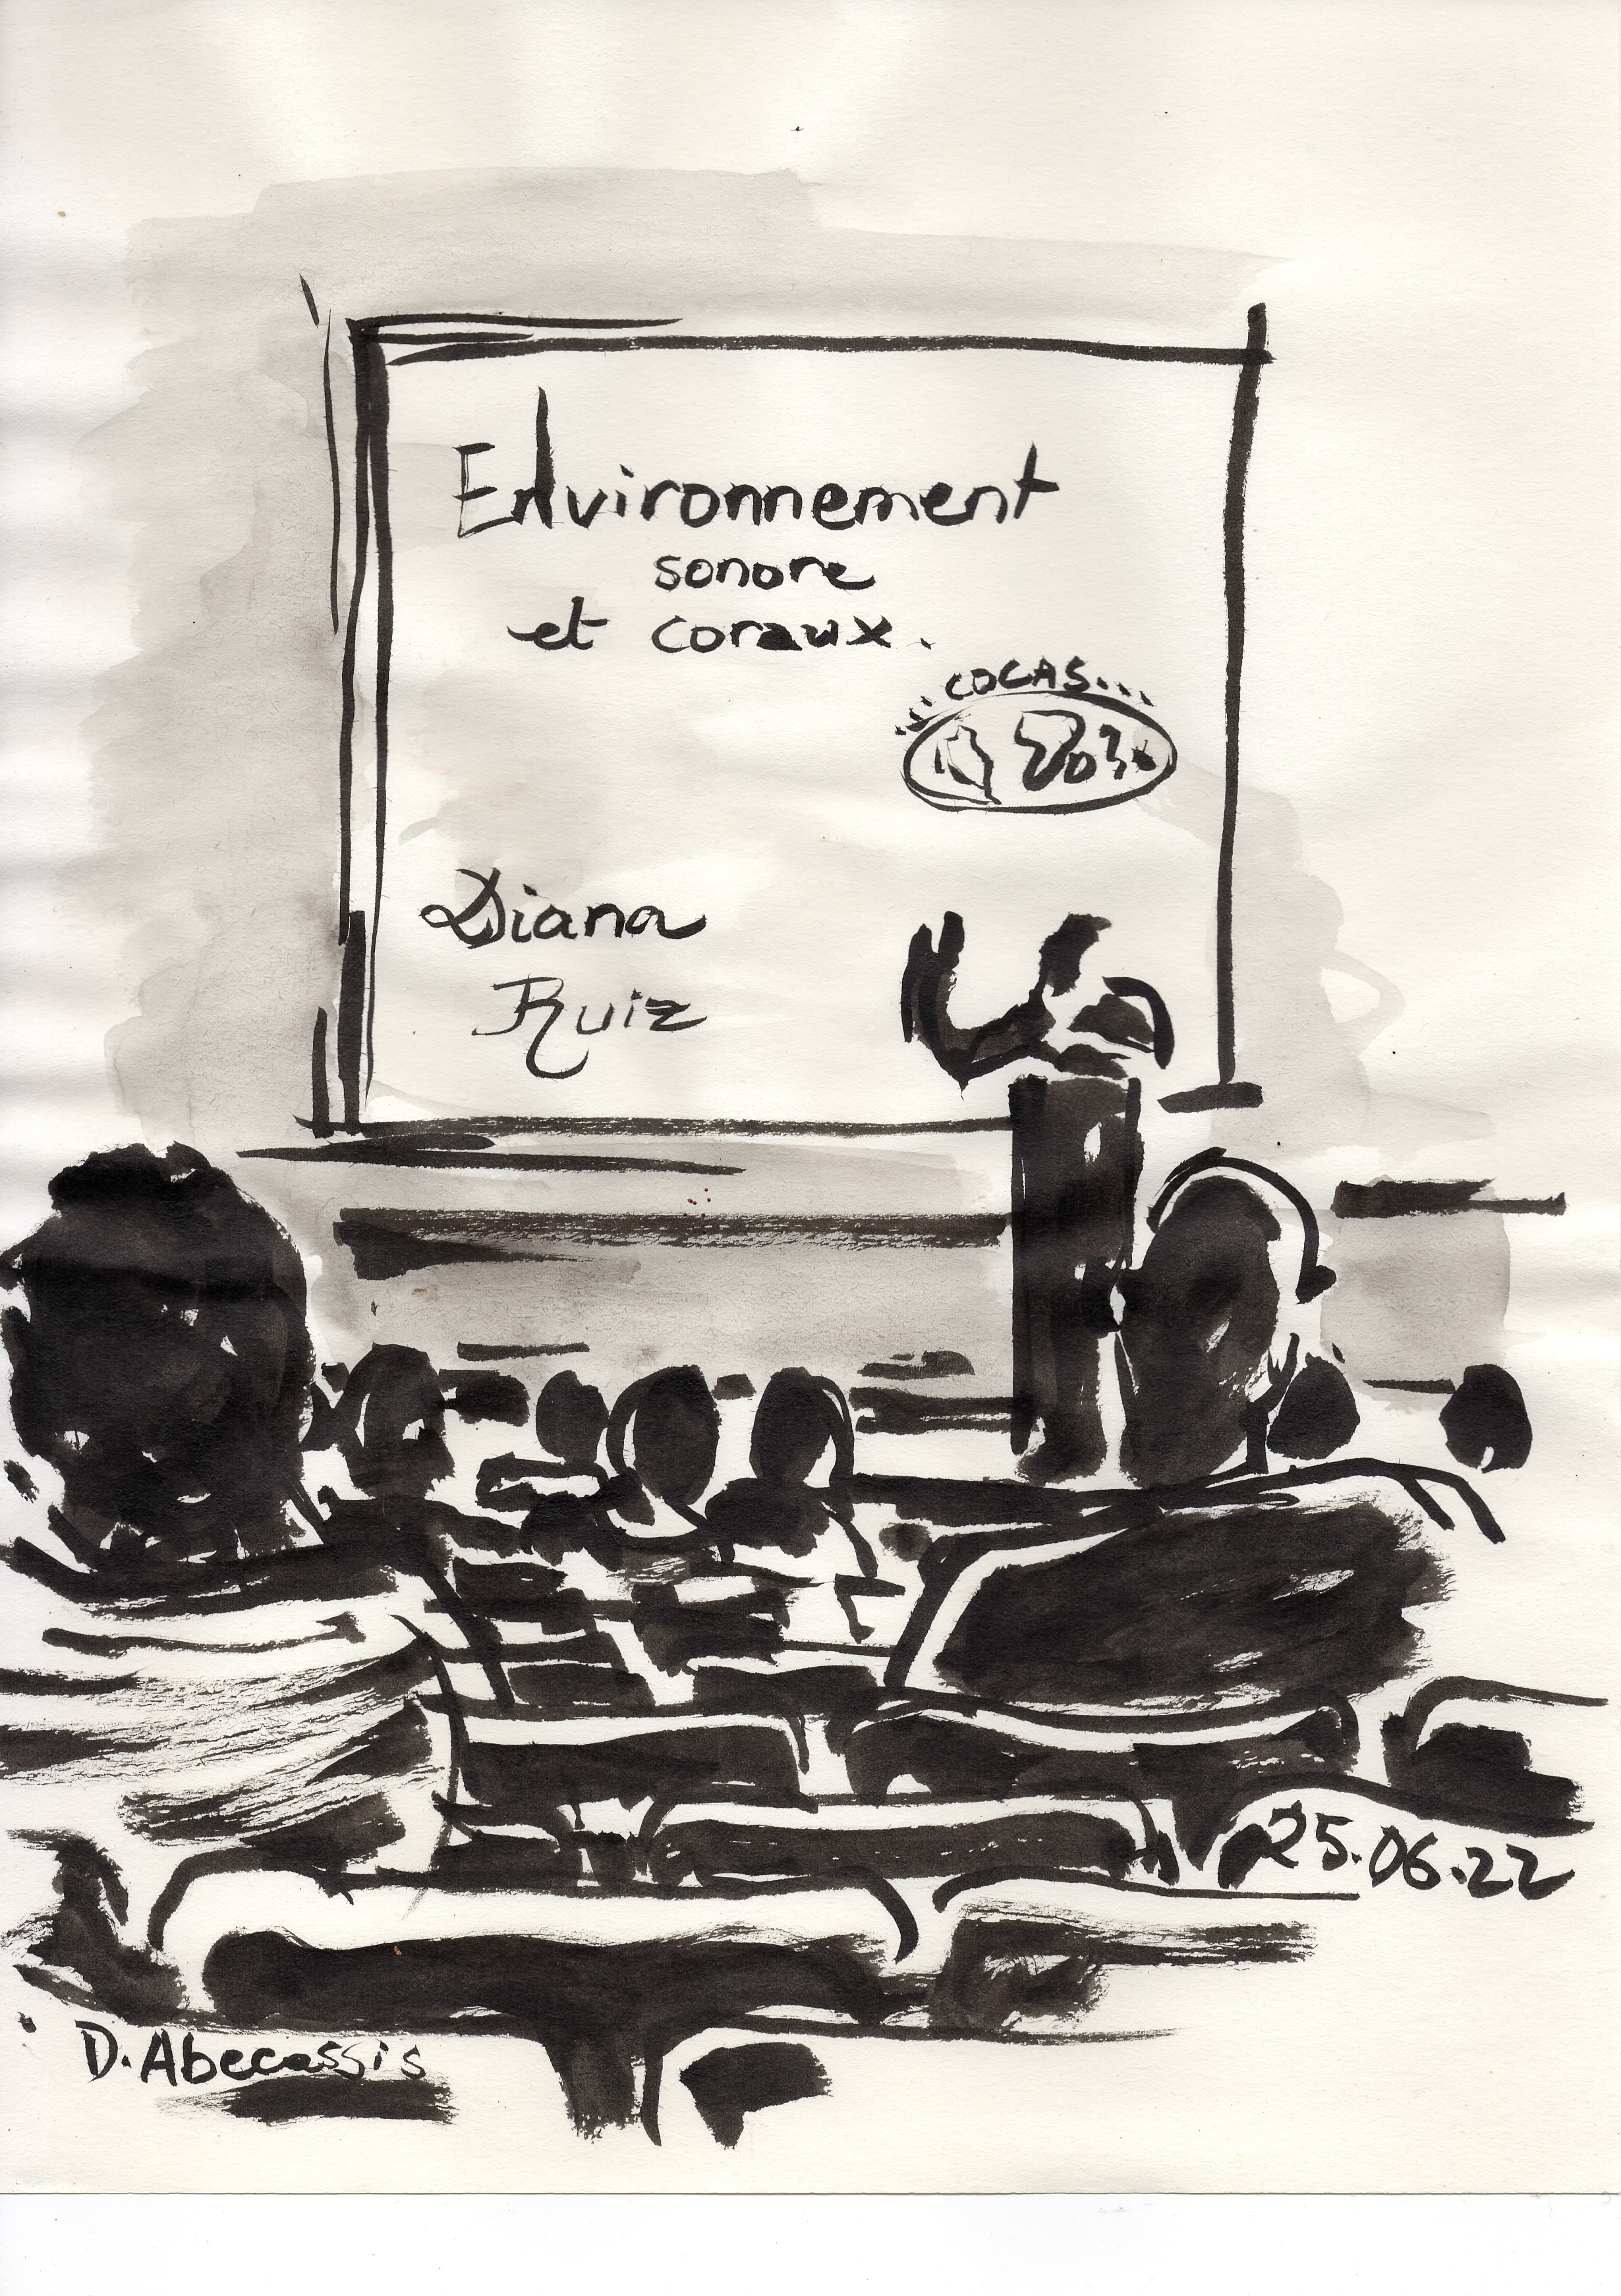 Environnement
sonore
et coraux.
...COCAS...
Diana
Ruiz
25.06.22
D. Abecassis